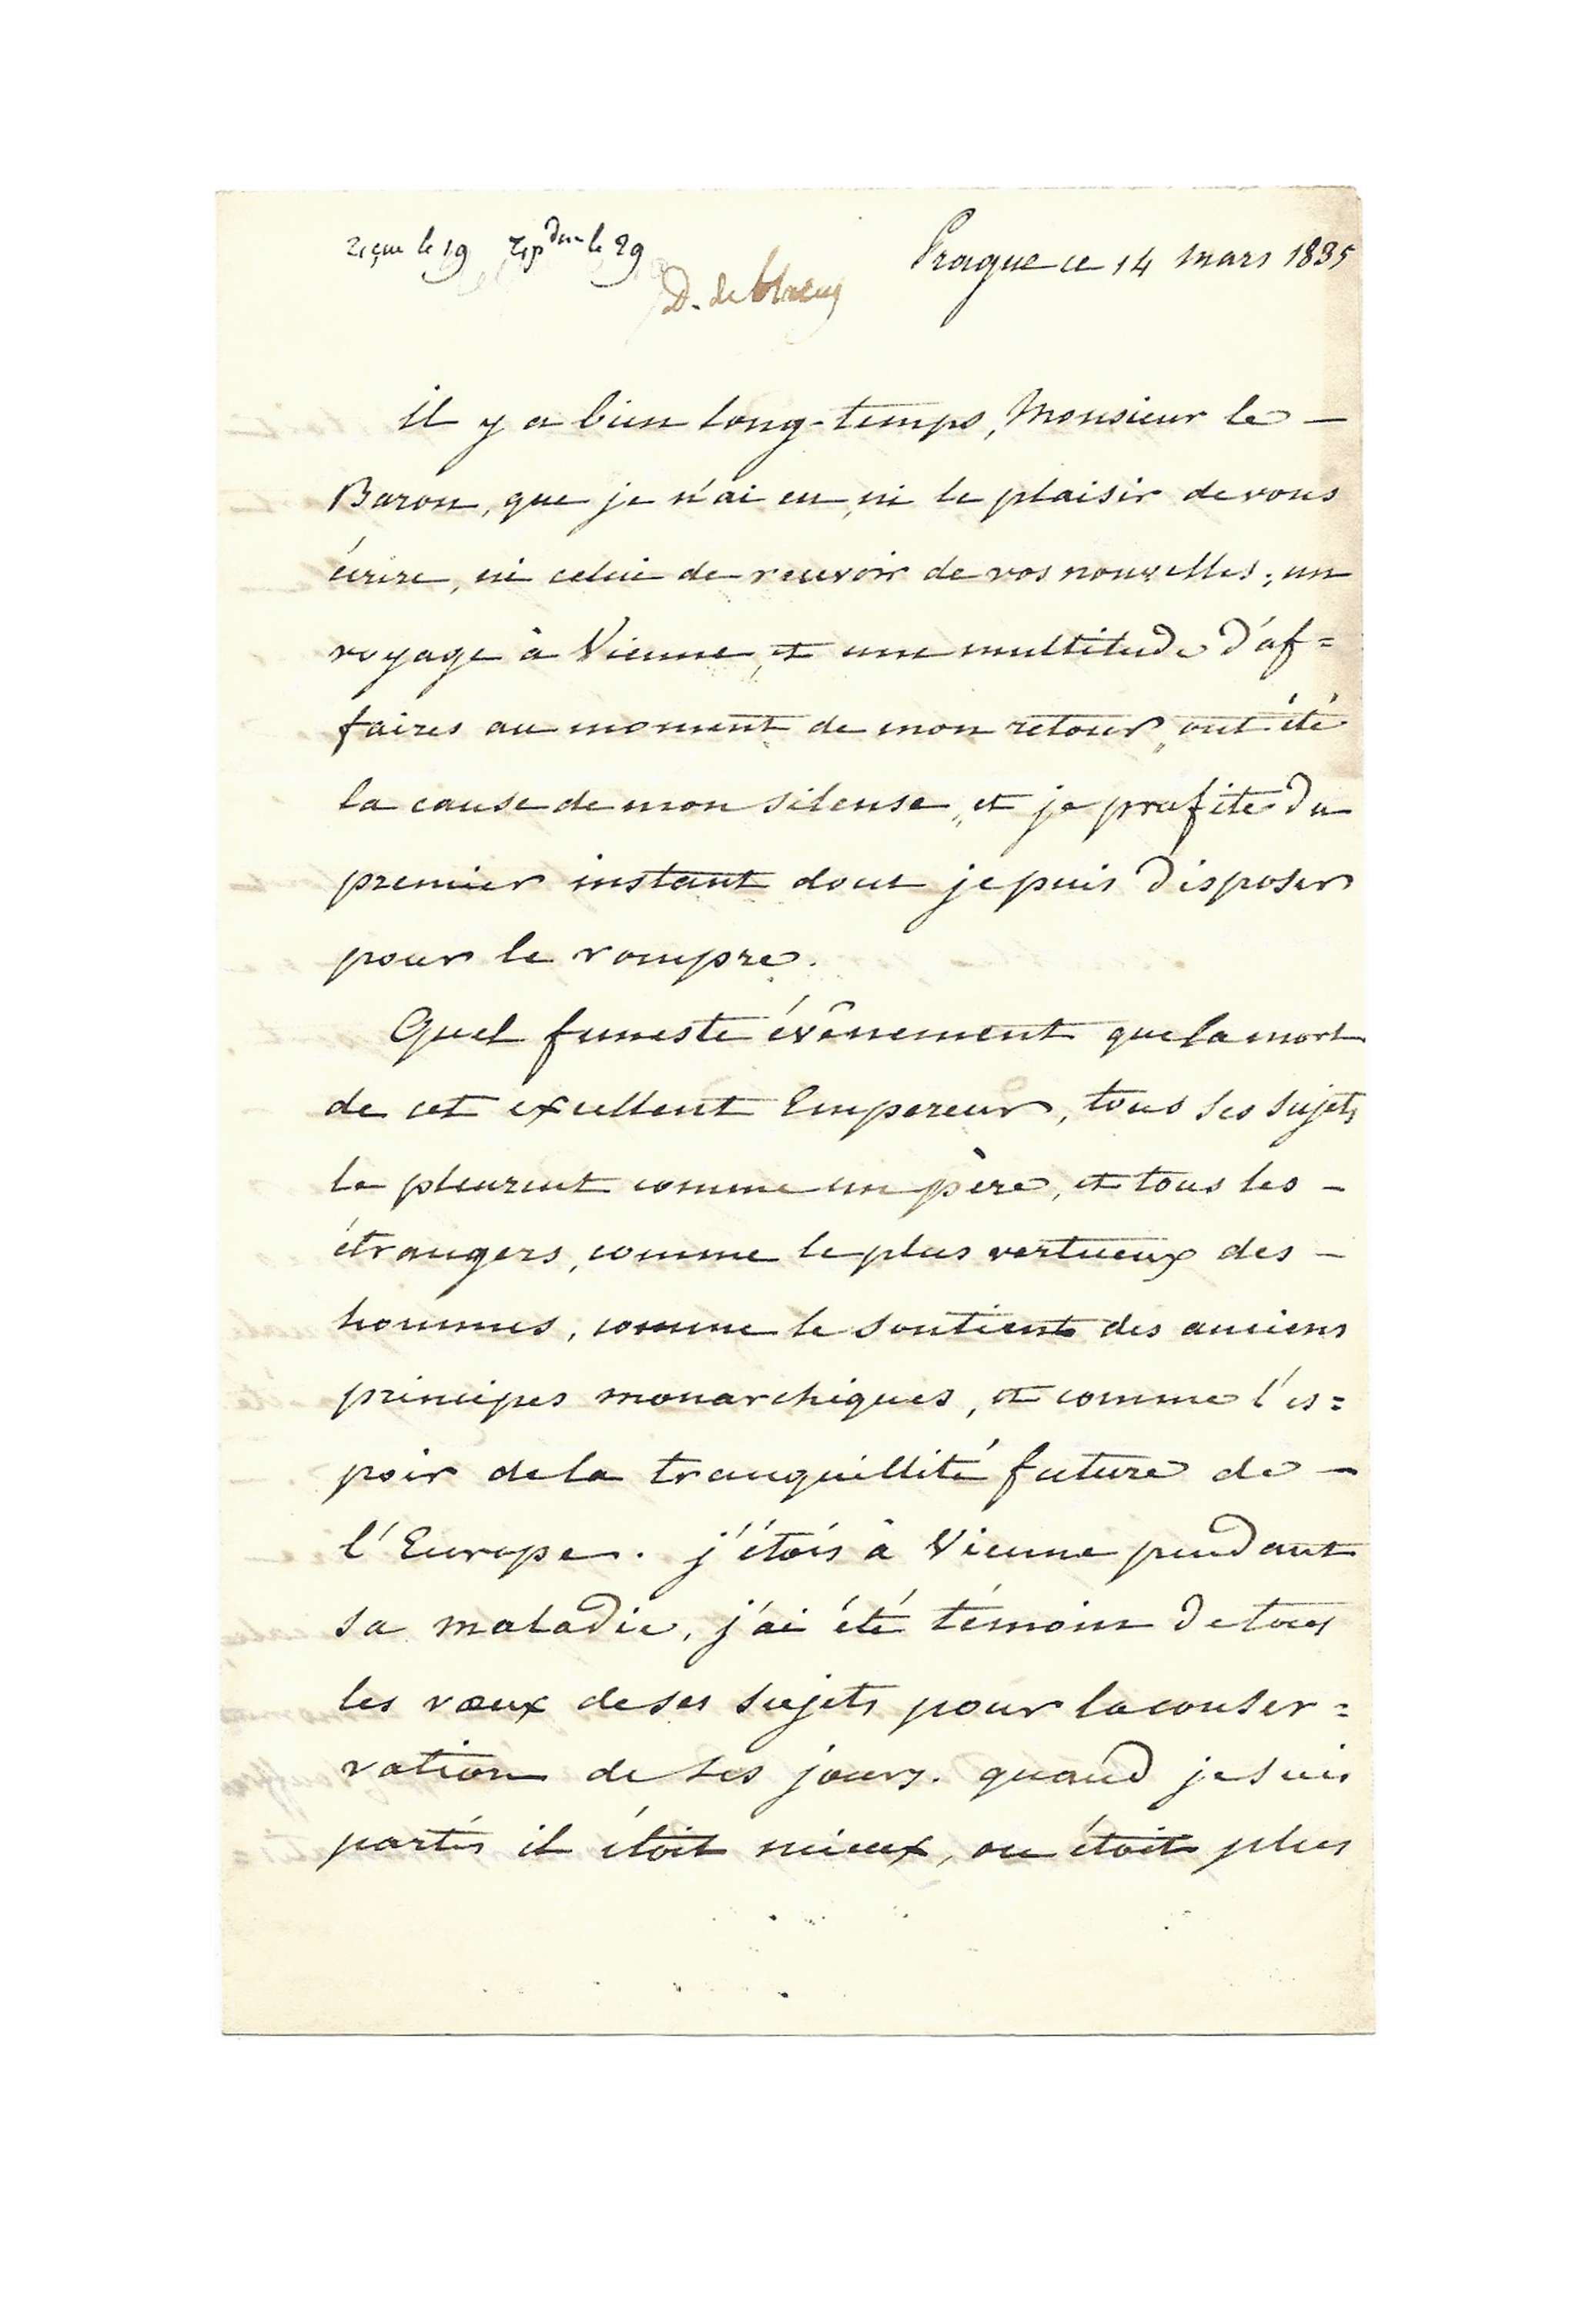 reçue le 19 rép due le 29
D. de Blacas
Prague ce 14 mars 1835
il y a bien long-temps, Monsieur le –
Baron, que je n'ai eu, ni le plaisir de vous
écrire, ni celui de recevoir de vos nouvelles; un
voyage à Vienne, et une multitude d'af=
faires au moment de mon retour, ont été
la cause de mon silense, et je profite du
premier instant dont je puis disposer
pour le rompre.
Quel funeste évênement que la mort
de cet excellent Empereur, tous ses sujets
le pleurent comme un père, et tous les –
étrangers, comme le plus vertueux des –
hommes, comme le soutient des anciens
principes monarchiques, et comme l'es=
poir de la tranquillité future de –
l'Europe. j'étois à Vienne pendant
sa maladie, j'ai été témoin de tous
les vœux de ses sujets pour la conser=
vation de ses jours. quand je suis
partis il étoit mieux, on étoit plus